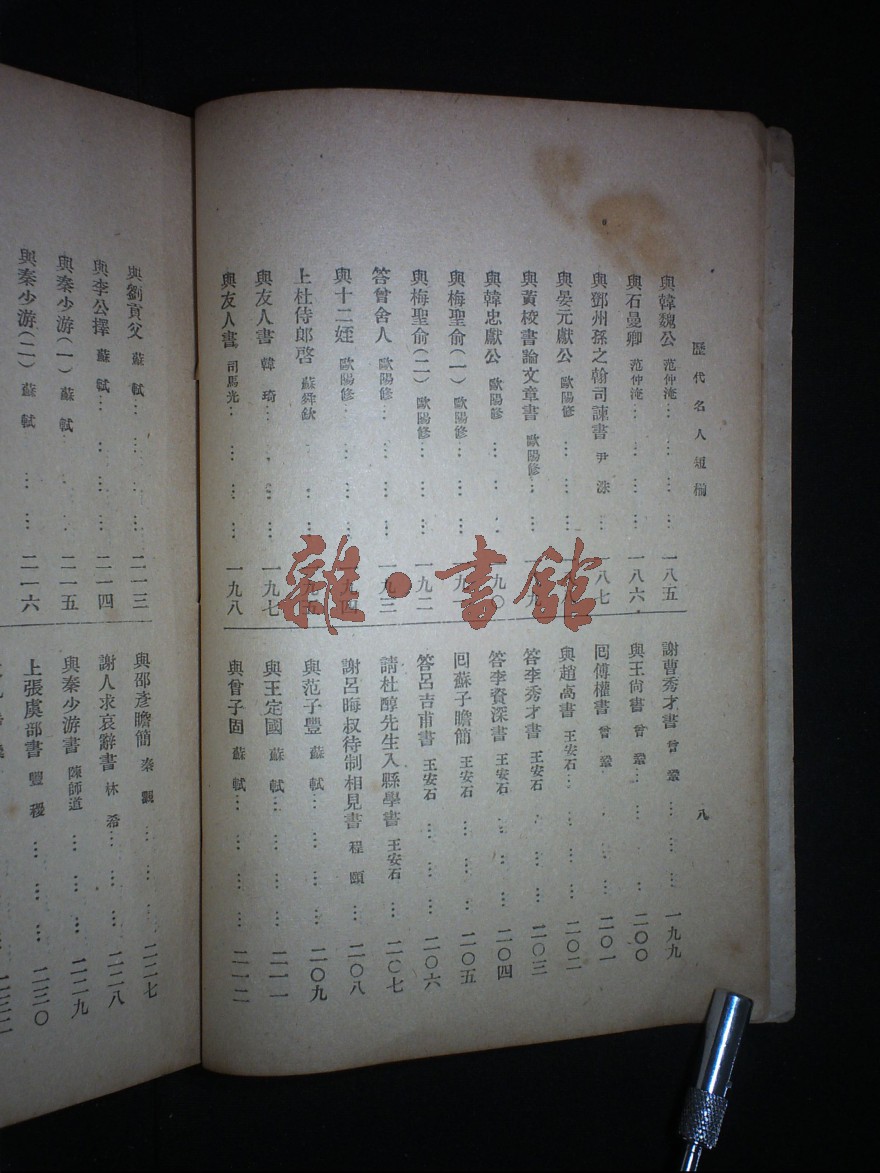 歷代名人短柬
八
與韓魏公 范仲淹 一八五
與石曼卿 范仲淹 一八六
與鄧州孫之翰司諫書 尹洙 一八七
與晏元獻公 歐陽修
與黃校書論文章書 歐陽修
與韓忠獻公 歐陽修 一九〇
與梅聖俞(一) 歐陽修
與梅聖俞(二) 歐陽修 一九二
答曾舍人 歐陽修 一九三
與十二姪 歐陽修 一九四
上杜侍郎啓 蘇舜欽 一九五
與友人書 韓琦 一九七
與友人書 司馬光 一九八
謝曹秀才書 曾鞏 一九九
與王尚書 曾鞏 二〇〇
回傅權書 曾鞏 二〇一
與趙卨書 王安石 二〇二
答李秀才書 王安石 二〇三
答李資深書 王安石 二〇四
回蘇子瞻簡 王安石 二〇五
答呂吉甫書 王安石 二〇六
請杜醇先生入縣學書 王安石 二〇七
謝呂晦叔待制相見書 程頤 二〇八
與范子豐 蘇軾 二〇九
與王定國 蘇軾 二一一
與曾子固 蘇軾 二一二
與劉貢父 蘇軾 二一三
與李公擇 蘇軾 二一四
與秦少游(一) 蘇軾 二一五
與秦少游(二) 蘇軾 二一六
與邵彥瞻簡 秦觀 二二七
謝人求哀辭書 林希 二二八
與秦少游書 陳師道 二二九
上張虞部書 豐稷 二三〇
雜·書館